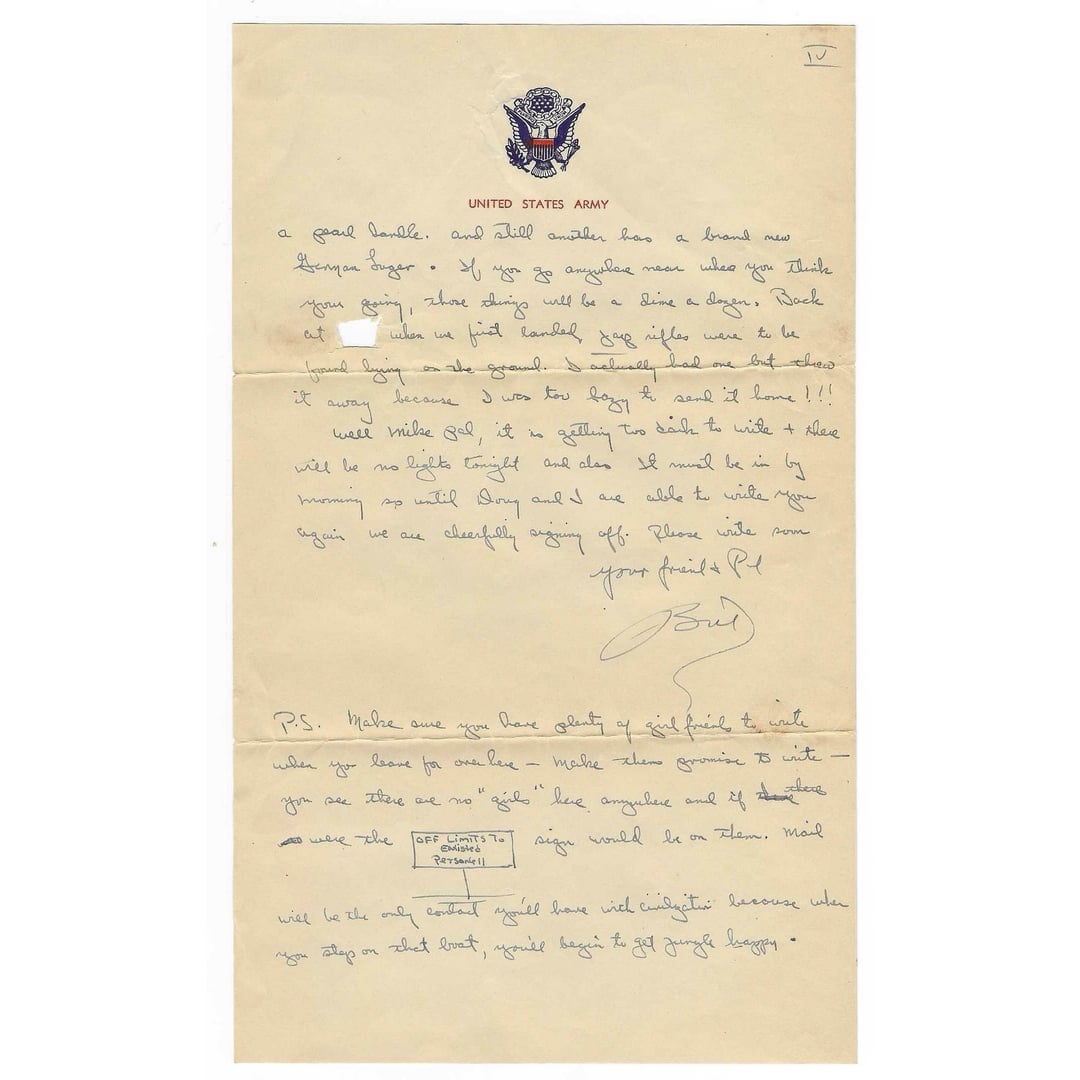 IV
UNITED STATES ARMY
a pearl handle. and still another has a brand new
German Luger. If you go anywhere near where you think
your going, those things will be a dime a dozen. Back
at when we first landed, Jap rifles were to be
found lying on the ground. I actually had one but threw
it away because I was too lazy to send it home!!!
Well Mike pal, it is getting too dark to write + there
will be no lights tonight and also it must be in by
morning so until Doug and I are able to write you
again we are cheerfully signing off. Please write soon
your friend + Pal
Bill
P.S. Make sure you have plenty of girl friends to write
when you leave for over here - Make them promise to write -
you see there are no "girls" here anywhere and if there
were the OFF LIMITS TO sign would be on them. Mail
Enlisted
Personell
will be the only contact you'll have with civilization because when
you step on that boat, you'll begin to get jungle happy.